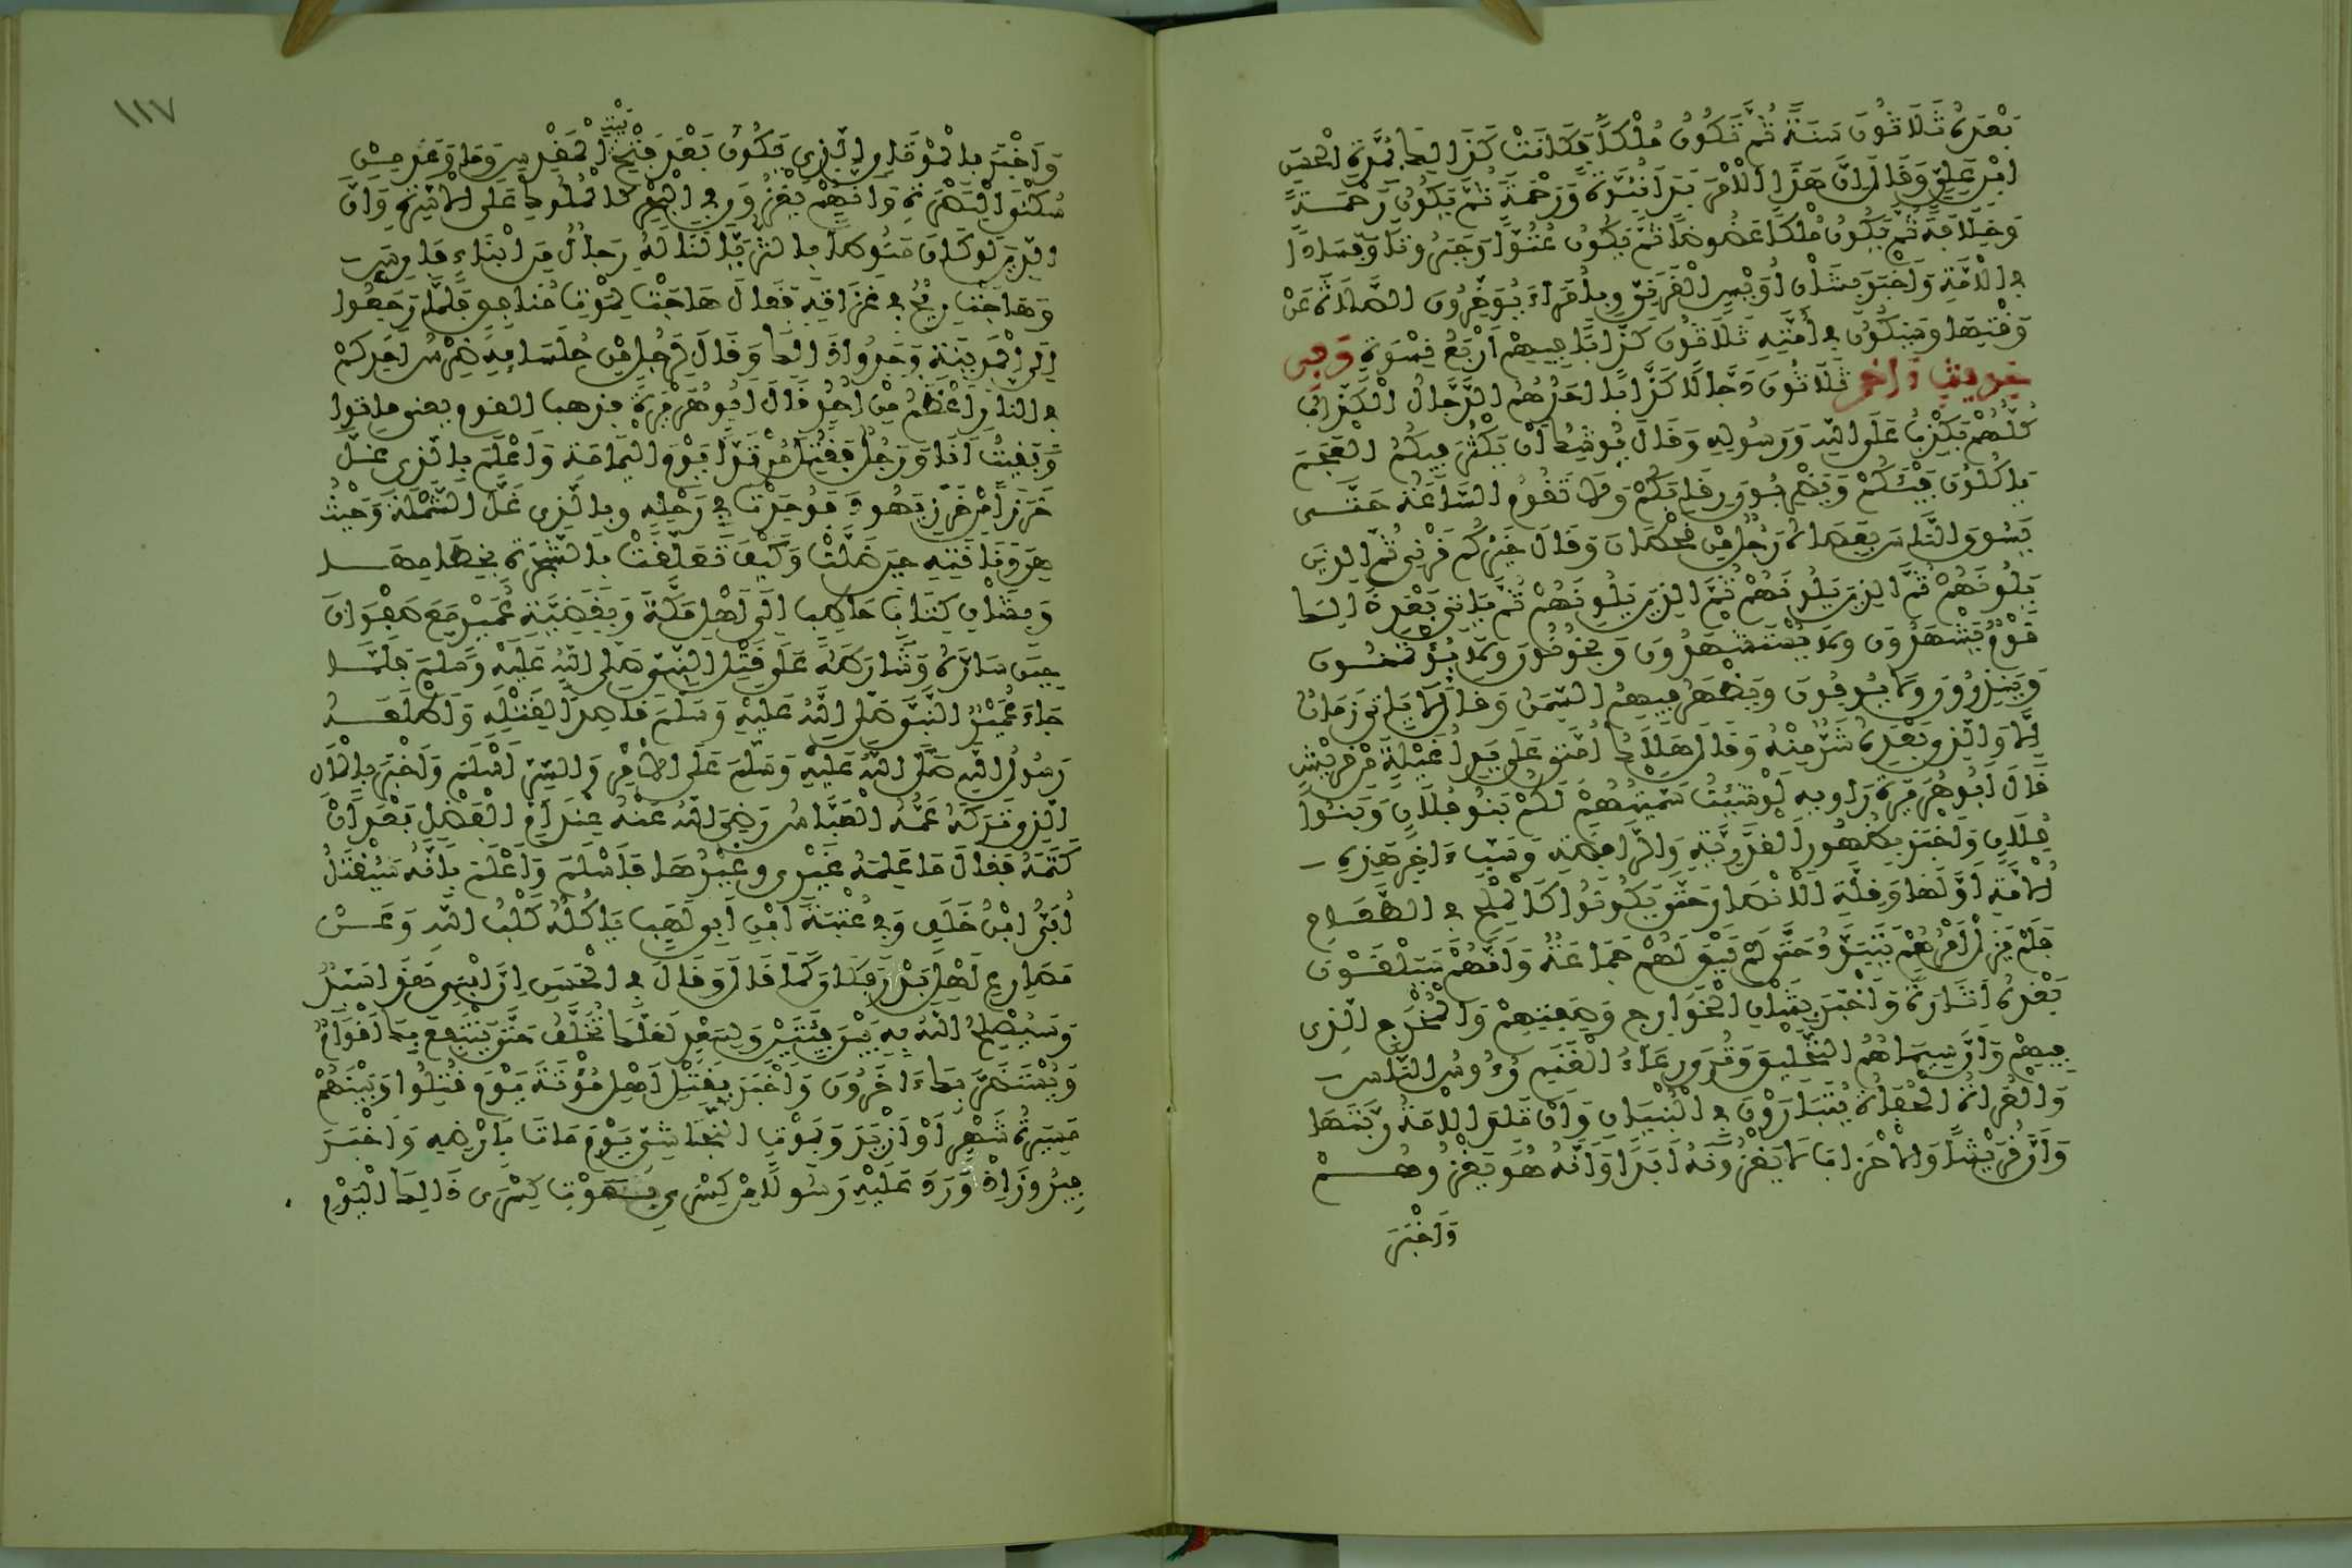 بَعْدِي ثَلَاثُونَ سَنَةً ثُمَّ تَكُونُ مُلْكًا فَكَانَتْ كَذَالِكَ بِمُدَّةِ الْحَسَنِ
ابْنِ عَلِيٍّ وَقَالَ إِنَّ هَذَا الْأَمْرَ بَدَأَ نُبُوَّةً وَرَحْمَةً ثُمَّ يَكُونُ رَحْمَةً
وَخِلَافَةً ثُمَّ يَكُونُ مُلْكًا عَضُوضًا ثُمَّ يَكُونُ عُتُوًّا وَجَبَرُوتًا وَفَسَادًا
فِي الْأُمَّةِ وَأَخْبَرَ بِشَأْنِ أُوَيْسٍ الْقَرَنِيِّ وَبِأُمَرَاءَ يُؤَخِّرُونَ الصَّلَاةَ عَنْ
وَقْتِهَا وَسَيَكُونُ فِي أُمَّتِهِ ثَلَاثُونَ كَذَّابًا فِيهِمْ أَرْبَعُ نِسْوَةٍ وَفِي
حَدِيثٍ ءَاخَرَ ثَلَاثُونَ دَجَّالًا كَذَّابًا أَحَدُهُمُ الدَّجَّالُ الْكَذَّابُ
كُلُّهُمْ يَكْذِبُ عَلَى اللَّهِ وَرَسُولِهِ وَقَالَ يُوشِكُ أَنْ يَكْثُرَ فِيكُمُ الْعَجَمُ
يَأْكُلُونَ فَيْئَكُمْ وَيَضْرِبُونَ رِقَابَكُمْ وَلَا تَقُومُ السَّاعَةُ حَتَّى
يَسُوقَ النَّاسَ بِعَصَاهُ رَجُلٌ مِنْ قَحْطَانَ وَقَالَ خَيْرُكُمْ قَرْنِي ثُمَّ الَّذِينَ
يَلُونَهُمْ ثُمَّ الَّذِينَ يَلُونَهُمْ ثُمَّ الَّذِينَ يَلُونَهُمْ ثُمَّ يَأْتِي بَعْدَ ذَالِكَ
قَوْمٌ يَشْهَدُونَ وَلَا يُسْتَشْهَدُونَ وَيَخُونُونَ وَلَا يُؤْتَمَنُونَ
وَيَنْذِرُونَ وَلَا يُوفُونَ وَيَظْهَرُ فِيهِمُ السِّمَنُ وَقَالَ لَا يَأْتِي زَمَانٌ
إِلَّا وَالَّذِي بَعْدَهُ شَرٌّ مِنْهُ وَقَالَ هَلَاكُ أُمَّتِي عَلَى يَدِ أُغَيْلِمَةٍ مِنْ قُرَيْشٍ
قَالَ أَبُو هُرَيْرَةَ رَاوِيهِ لَوْ شِئْتُ سَمَّيْتُهُمْ لَكُمْ بَنُو فُلَانٍ وَبَنُو
فُلَانٍ وَأَخْبَرَ بِظُهُورِ الْقَدَرِيَّةِ وَالرَّافِضَةِ وَسَبِّ ءَاخِرِ هَذِهِ
الْأُمَّةِ أَوَّلَهَا وَقِلَّةِ الْأَنْصَارِ حَتَّى يَكُونُوا كَالْمِلْحِ فِي الطَّعَامِ
فَلَمْ يَزَلْ أَمْرُهُمْ يَتَبَدَّدُ حَتَّى لَمْ يَبْقَ لَهُمْ جَمَاعَةٌ وَأَنَّهُمْ سَيَلْقَوْنَ
بَعْدَهُ أَثَرَةً وَأَخْبَرَ بِشَأْنِ الْخَوَارِجِ وَصِفَتِهِمْ وَالْمُخْدَجِ الَّذِي
فِيهِمْ وَأَنَّ سِيمَاهُمُ التَّحْلِيقُ وَتُرَى رِعَاءُ الْغَنَمِ رُءُوسُ النَّاسِ
وَالْعُرَاةُ الْحُفَاةُ يَتَبَارَوْنَ فِي الْبُنْيَانِ وَأَنْ تَلِدَ الْأَمَةُ رَبَّتَهَا
وَأَنَّ قُرَيْشًا وَالْأَحْزَابَ لَا يَغْزُونَهُ أَبَدًا وَأَنَّهُ هُوَ يَغْزُوهُمْ
وَأَخْبَرَ
١١٧
بَيْتِ
وَأَخْبَرَ بِالْمُوتَانِ الَّذِي يَكُونُ بَعْدَ فَتْحِ الْمَقْدِسِ وَمَا وَعَدَ مِنْ
سُكْنَى الْبَصْرَةِ وَأَنَّهُمْ يَغْزُونَ فِي الْبَحْرِ كَالْمُلُوكِ عَلَى الْأَسِرَّةِ وَأَنَّ
الدِّينَ لَوْ كَانَ مَنُوطًا بِالثُّرَيَّا لَنَالَهُ رِجَالٌ مِنْ أَبْنَاءِ فَارِسَ
وَهَاجَتْ رِيحٌ فِي غَزَاتِهِ فَقَالَ هَاجَتْ لِمَوْتِ مُنَافِقٍ فَلَمَّا رَجَعُوا
إِلَى الْمَدِينَةِ وَجَدُوا ذَالِكَ وَقَالَ لِرَجُلٍ مِنْ جُلَسَائِهِ ضِرْسُ أَحَدِكُمْ
فِي النَّارِ أَعْظَمُ مِنْ أُحُدٍ قَالَ أَبُو هُرَيْرَةَ فَذَهَبَ الْقَوْمُ يَعْنِي مَاتُوا
وَبَقِيتُ أَنَا وَرَجُلٌ فَقُتِلَ مُرْتَدًّا يَوْمَ الْيَمَامَةِ وَأَعْلَمَ بِالَّذِي غَلَّ
خَرَزًا مِنْ خَرَزِ يَهُودَ فَوُجِدَتْ فِي رَحْلِهِ وَبِالَّذِي غَلَّ الشَّمْلَةَ وَحَيْثُ
هِيَ وَنَاقَتِهِ حِينَ ضَلَّتْ وَكَيْفَ تَعَلَّقَتْ بِالشَّجَرَةِ بِخِطَامِهَا
وَبِشَأْنِ كِتَابِ حَاطِبٍ إِلَى أَهْلِ مَكَّةَ وَبِقَضِيَّةِ عُمَيْرٍ مَعَ صَفْوَانَ
حِينَ سَارَّهُ وَشَارَطَهُ عَلَى قَتْلِ النَّبِيِّ صَلَّى اللَّهُ عَلَيْهِ وَسَلَّمَ فَلَمَّا
جَاءَ عُمَيْرٌ النَّبِيَّ صَلَّى اللَّهُ عَلَيْهِ وَسَلَّمَ قَاصِدًا لِقَتْلِهِ وَأَطْلَعَهُ
رَسُولُ اللَّهِ صَلَّى اللَّهُ عَلَيْهِ وَسَلَّمَ عَلَى الْأَمْرِ وَالسِّرِّ أَسْلَمَ وَأَخْبَرَ بِالْمَالِ
الَّذِي تَرَكَهُ عَمُّهُ الْعَبَّاسُ رَضِيَ اللَّهُ عَنْهُ عِنْدَ أُمِّ الْفَضْلِ بَعْدَ أَنْ
كَتَمَهُ فَقَالَ مَا عَلِمَهُ غَيْرِي وَغَيْرُهَا فَأَسْلَمَ وَأَعْلَمَ بِأَنَّهُ سَيُقْتَلُ
أُبَيُّ ابْنُ خَلَفٍ وَفِي عُتْبَةَ ابْنِ أَبِي لَهَبٍ يَأْكُلُهُ كَلْبُ اللَّهِ وَعَنْ
مَصَارِعِ أَهْلِ بَدْرٍ فَكَانَ كَمَا قَالَ وَقَالَ فِي الْحَسَنِ إِنَّ ابْنِي هَذَا سَيِّدٌ
وَسَيُصْلِحُ اللَّهُ بِهِ بَيْنَ فِئَتَيْنِ وَلِسَعْدٍ لَعَلَّكَ تُخَلَّفُ حَتَّى يَنْتَفِعَ بِكَ أَقْوَامٌ
وَيُسْتَضَرَّ بِكَ ءَاخَرُونَ وَأَخْبَرَ بِقَتْلِ أَهْلِ مُؤْتَةَ يَوْمَ قُتِلُوا وَبَيْنَهُمْ
مَسِيرَةُ شَهْرٍ أَوْ أَزْيَدَ وَبِمَوْتِ النَّجَاشِيِّ يَوْمَ مَاتَ بِأَرْضِهِ وَأَخْبَرَ
فَيْرُوزَ إِذْ وَرَدَ عَلَيْهِ رَسُولًا مِنْ كِسْرَى بِمَوْتِ كِسْرَى ذَالِكَ الْيَوْمَ